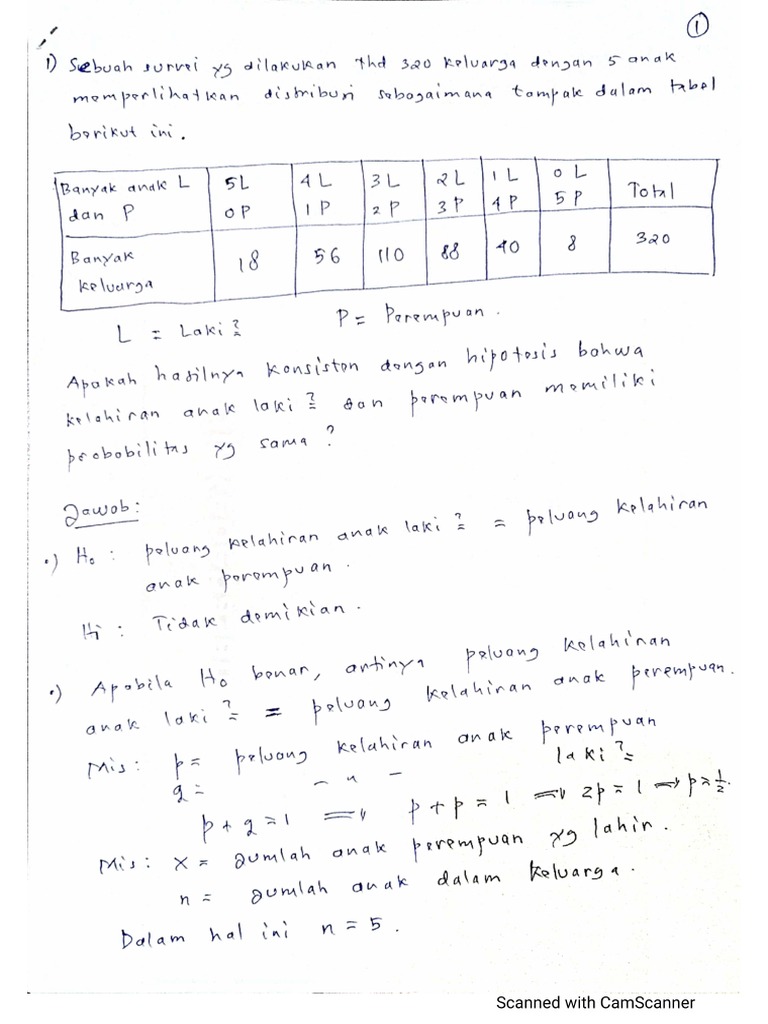 ①
1) Sebuah survei yg dilakukan thd 320 keluarga dengan 5 anak
memperlihatkan distribusi sebagaimana tampak dalam tabel
berikut ini.
Banyak anak L dan P | 5L 0P | 4L 1P | 3L 2P | 2L 3P | 1L 4P | 0L 5P | Total
Banyak keluarga | 18 | 56 | 110 | 88 | 40 | 8 | 320
L = Laki² P = Perempuan.
Apakah hasilnya konsisten dengan hipotesis bahwa
kelahiran anak laki² dan perempuan memiliki
probabilitas yg sama?
Jawab:
•) H₀ : peluang kelahiran anak laki² = peluang kelahiran
anak perempuan.
H₁ : Tidak demikian.
•) Apabila H₀ benar, artinya peluang kelahiran
anak laki² = peluang kelahiran anak perempuan.
Mis: p = peluang kelahiran anak perempuan
q = — " — laki²
p + q = 1 ⟹ p + p = 1 ⟹ 2p = 1 ⟹ p = ½.
Mis: x = Jumlah anak perempuan yg lahir.
n = Jumlah anak dalam keluarga.
Dalam hal ini n = 5.
Scanned with CamScanner